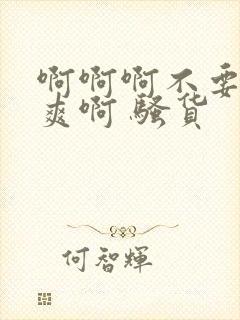 啊啊啊不要
爽啊 骚货
何智輝